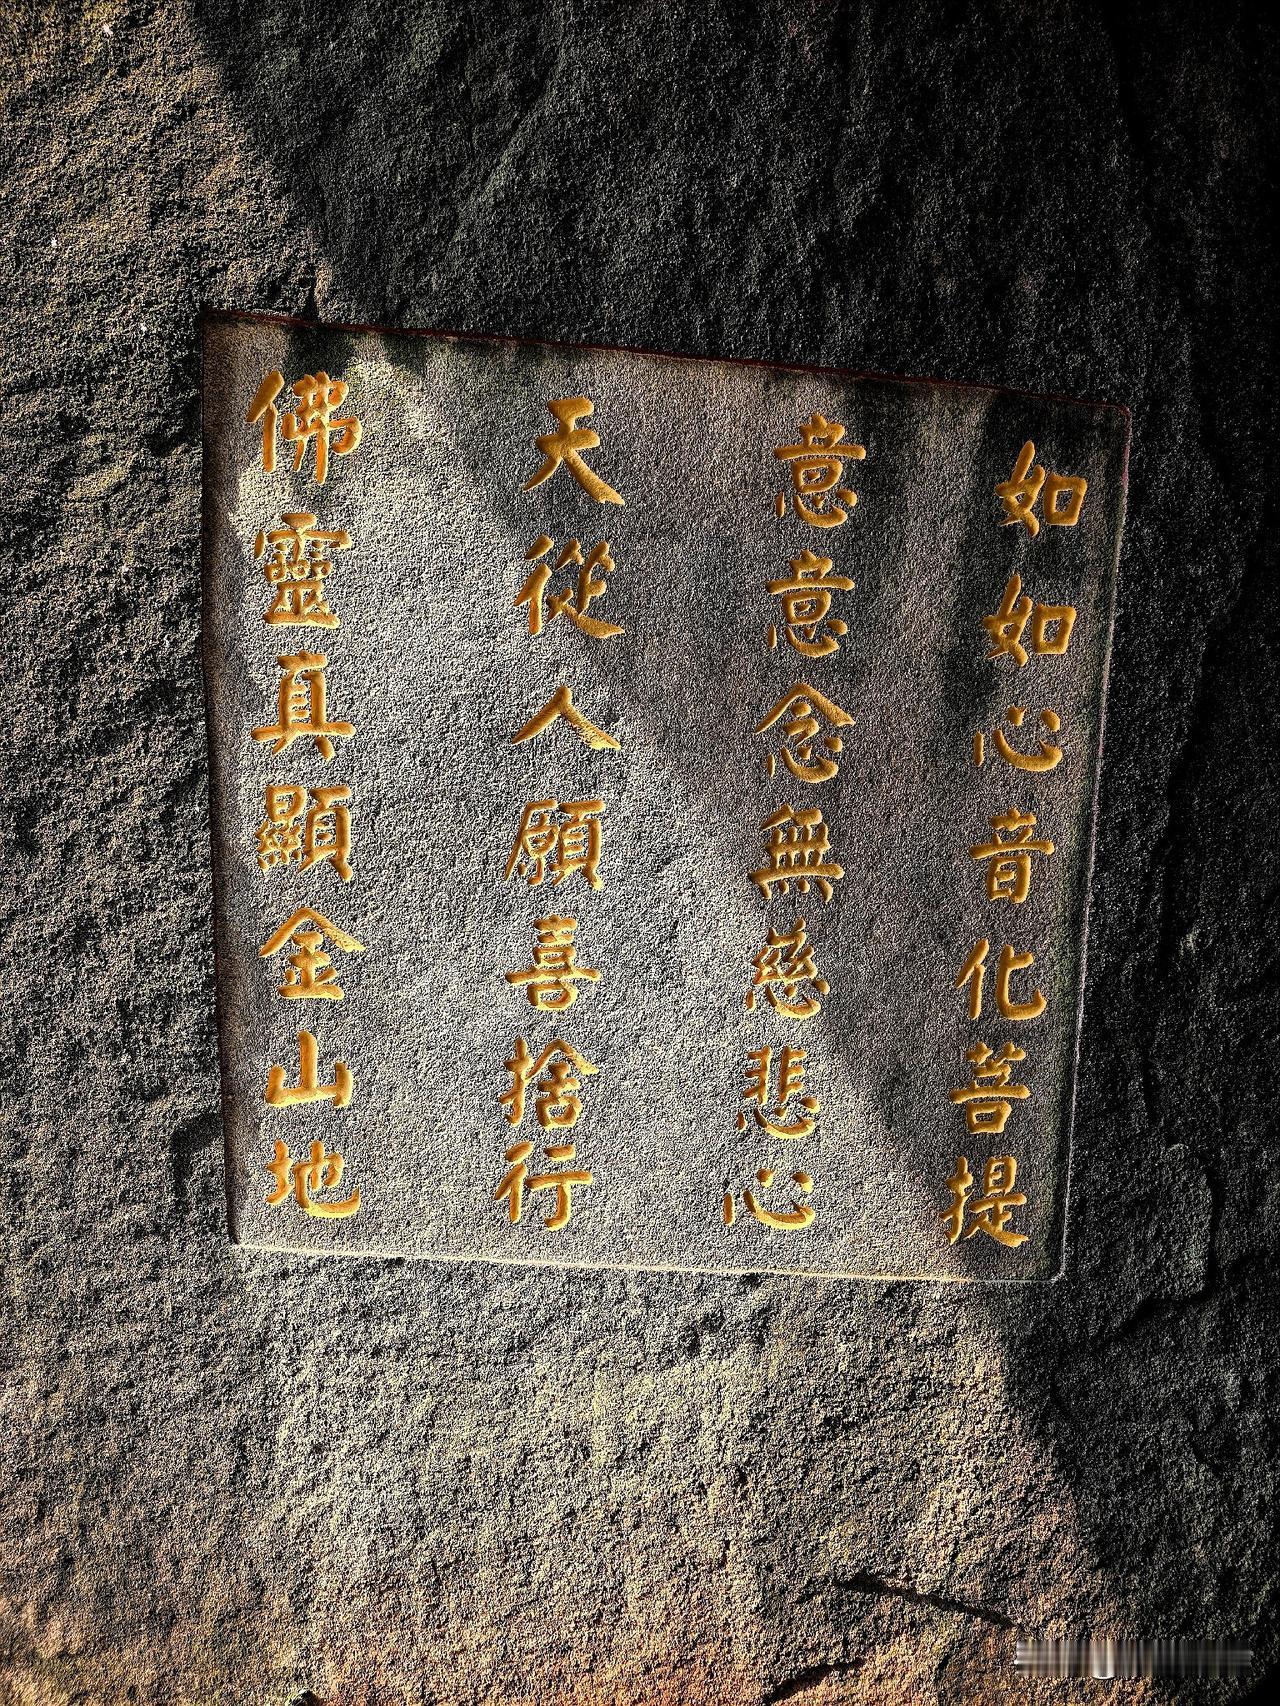 如如心音化菩提
意意念無慈悲心
天從人願喜捨行
佛靈真顯金山地